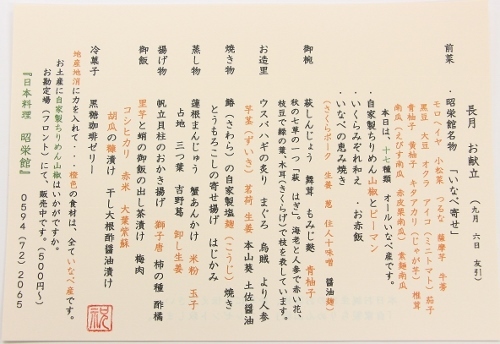 長月 お献立 (九月 六日 友引)
前菜 ・昭栄館名物 「いなべ寄せ」
モロヘイヤ 小松菜 つるな 薩摩芋 牛蒡
黒豆 大豆 オクラ アイコ(ミニトマト) 茄子
青柚子 黄柚子 キタアカリ(じゃが芋) 椎茸
南瓜(えびす南瓜 赤皮栗南瓜) 紫麺南瓜
本日は、十七種類 オールいなべ産です。
・自家製ちりめん山椒とピーマン
・いくらみぞれ和え ・お赤飯
・いなべの恵み焼き
(さくらポーク 生姜 葱 住人十味噌 醤油麹)
御椀 萩しんじょう 舞茸 もみじ麩 青柚子
秋の七草の一つ「萩 はぎ」。海老と人参で赤い花、
枝豆で緑の葉、木耳(きくらげ)で枝を表しています。
お造里 ウスバハギの炙り まぐろ 烏賊 より人参
芋茎(ずいき) 茗荷 生姜 本山葵 土佐醤油
焼き物 鰆(さわら)の自家製塩麹(こうじ)焼き
とうもろこしの寄せ揚げ はじかみ
蒸し物 蓮根まんじゅう 蟹あんかけ 米粉 玉子
占地 三つ葉 吉野葛 卸し生姜
揚げ物 帆立貝柱のおかき揚げ 獅子唐 柿の種 酢橘
御飯 里芋と蛸の御飯の出し茶漬け 梅肉
コシヒカリ 赤米 大葉紫蘇
胡瓜の糠漬け 干し大根酢醤油漬け
冷菓子 黒糖珈琲ゼリー
地産地消に力を入れて・・・橙色の食材は、全ていなべ産です。
お土産に自家製ちりめん山椒はいかがですか。
お勘定場(フロント)にて、販売中です。(500円~)
『日本料理 昭栄館』 0594(72)2065
祝